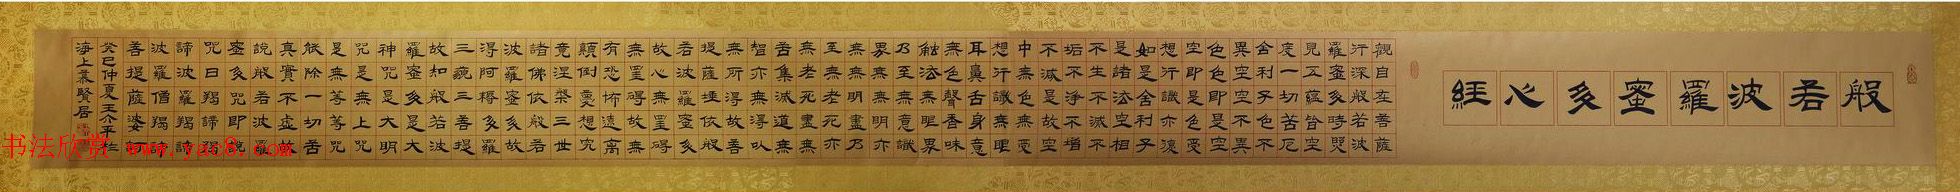 般若波羅蜜多心經
觀自在菩薩
行深般若波
羅蜜多時照
見五蘊皆空
度一切苦厄
舍利子色不
異空空不異
色色即是空
空即是色受
想行識亦復
如是舍利子
是諸法空相
不生不滅不
垢不淨不增
不減是故空
中無色無受
想行識無眼
耳鼻舌身意
無色聲香味
觸法無眼界
乃至無意識
界無無明亦
無無明盡乃
至無老死亦
無老死盡無
苦集滅道無
智亦無得以
無所得故菩
提薩埵依般
若波羅蜜多
故心無罣礙
無罣礙故無
有恐怖遠離
顛倒夢想究
竟涅槃三世
諸佛依般若
波羅蜜多故
得阿耨多羅
三藐三菩提
故知般若波
羅蜜多是大
神咒是大明
咒是無上咒
是無等等咒
能除一切苦
真實不虛故
說般若波羅
蜜多咒即說
咒曰羯諦羯
諦波羅羯諦
波羅僧羯諦
菩提薩婆訶
癸巳仲夏王亦平在
海上慕賢居
书法欣赏 www.yac8.com